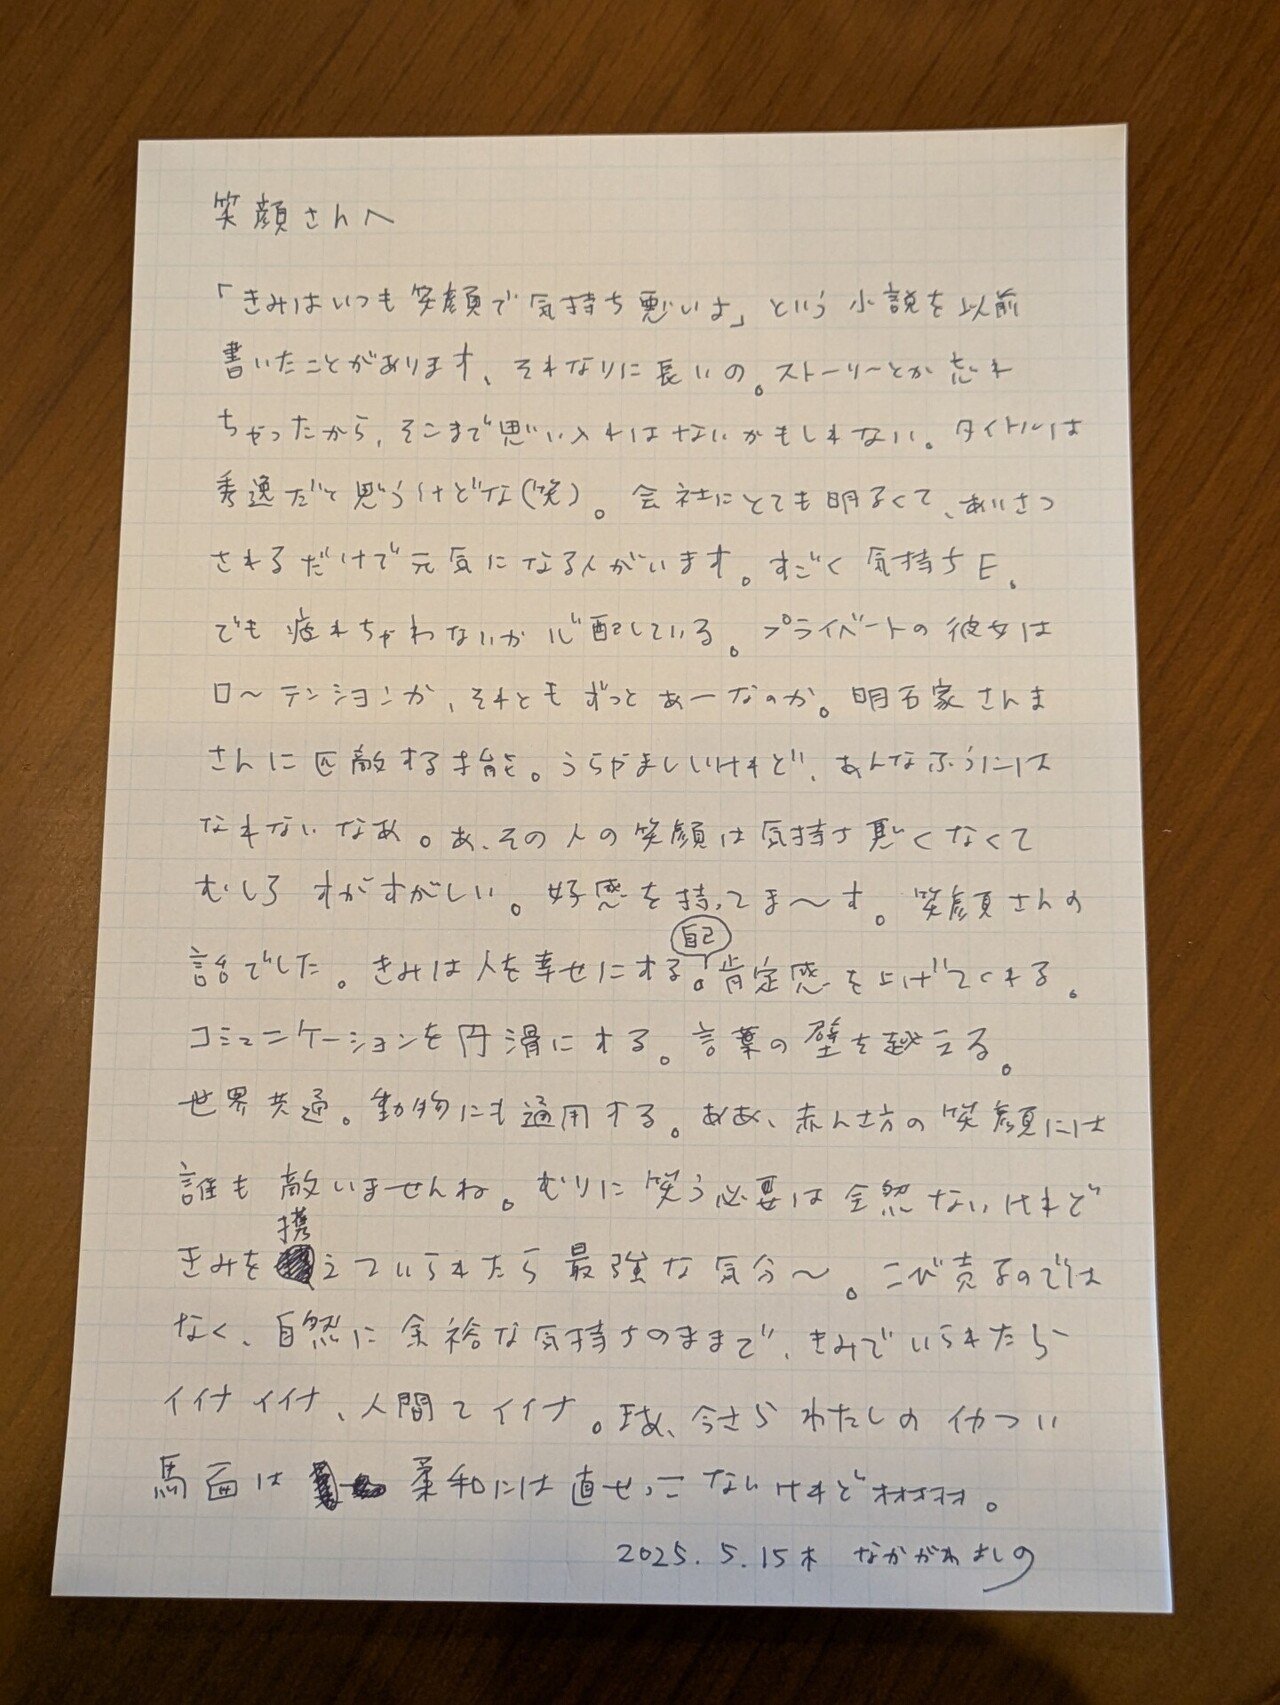 笑顔さんへ
「きみはいつも笑顔で気持ち悪いよ」という小説を以前
書いたことがあります、それなりに長いの。ストーリーとか忘れ
ちゃったから、そこまで思い入れはないかもしれない。タイトルは
秀逸だと思うけどな(笑)。会社にとても明るくて、あいさつ
されるだけで元気になる人がいます。すごく気持ちE。
でも疲れちゃわないか心配している。プライベートの彼女は
ロ〜テンションか、それともずっとあーなのか。明石家さんま
さんに匹敵する才能。うらやましいけれど、あんなふうには
なれないなあ。あ、その人の笑顔は気持ち悪くなくて
むしろすがすがしい。好感を持ってま〜す。笑顔さんの
話でした。きみは人を幸せにする。自己肯定感を上げてくれる。
コミュニケーションを円滑にする。言葉の壁を越える。
世界共通。動物にも通用する。ああ、赤ん坊の笑顔には
誰も敵いませんね。むりに笑う必要は全然ないけれど
きみを携えていられたら最強な気分〜。こび売るのでは
なく、自然に余裕な気持ちのままで、きみでいられたら
イイナイイナ、人間てイイナ。まあ、今さらわたしのイカつい
馬面は柔和には直せっこないけれどオオオオオ。
2025.5.15木 なかがわよしの